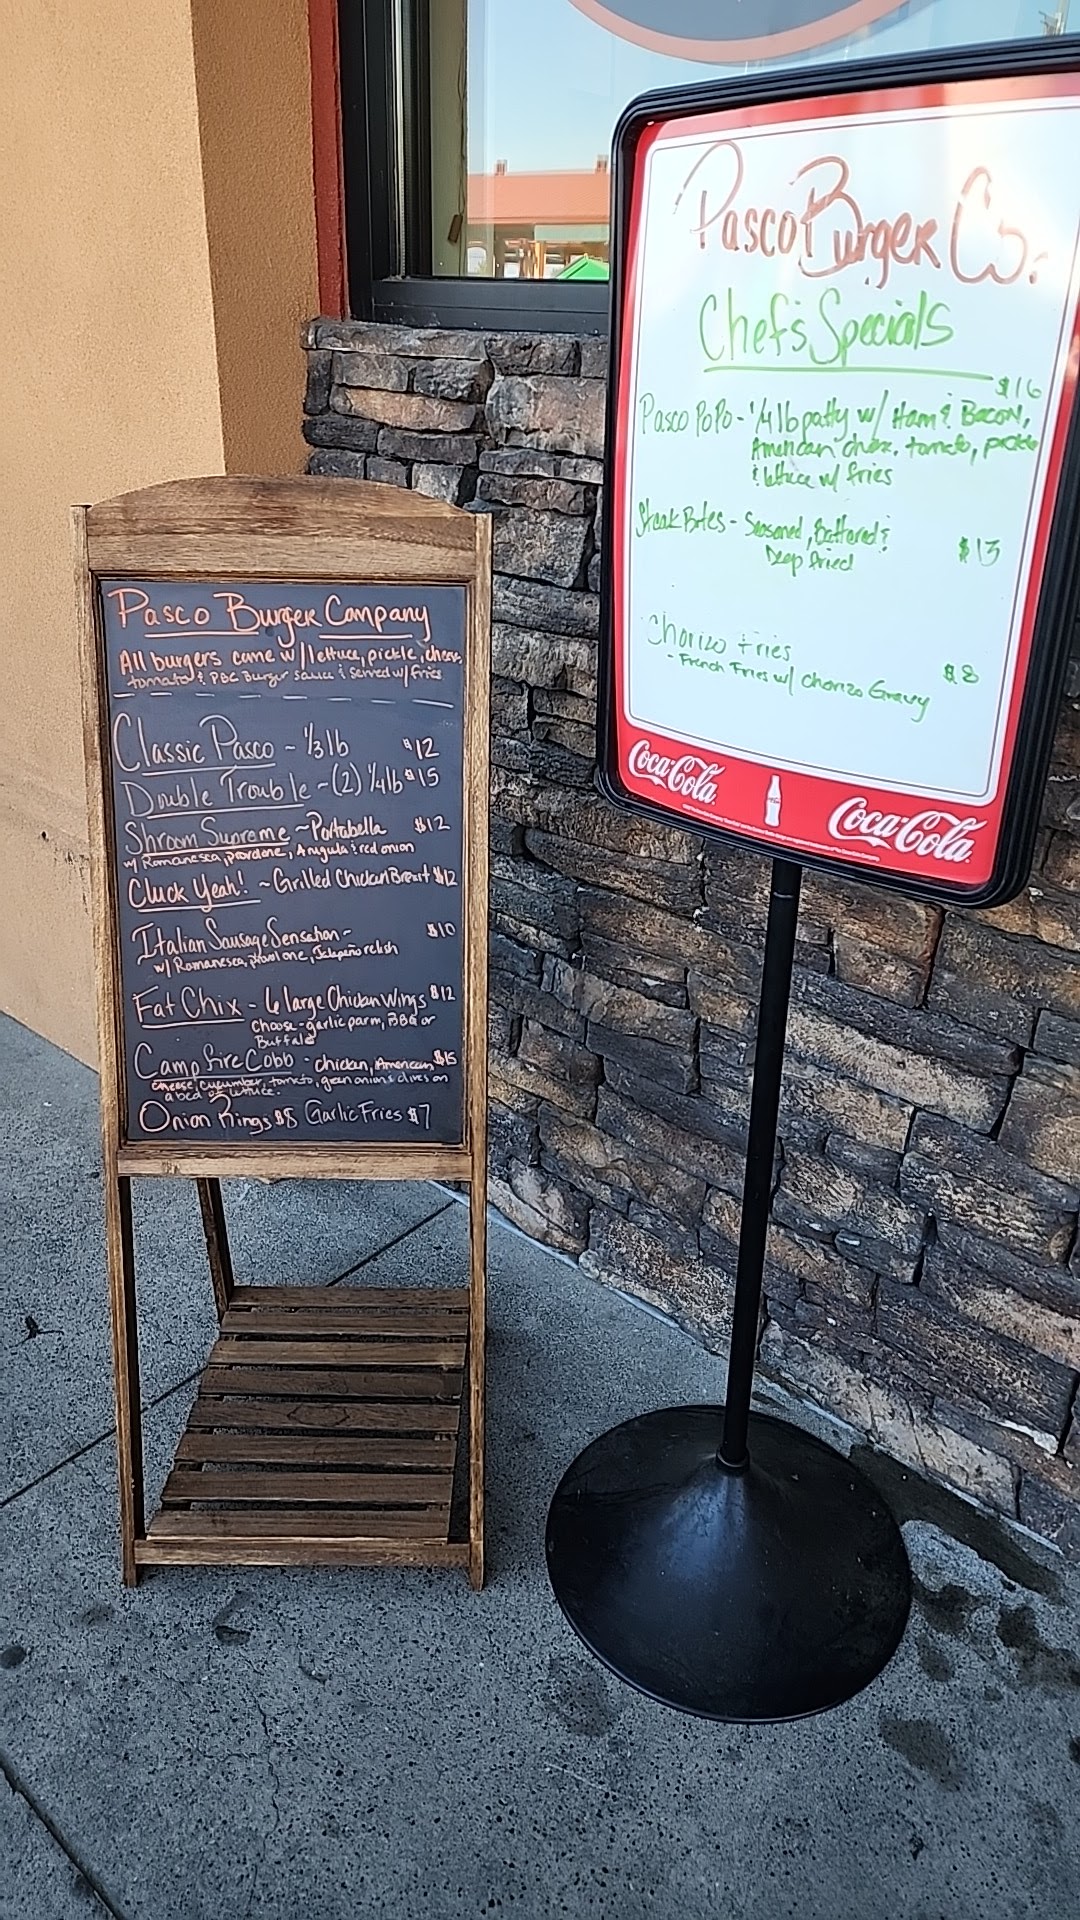 Pasco Burger Company
All burgers come w/ lettuce, pickle, cheese,
tomato & PBC Burger sauce & served w/ fries
Classic Pasco ~ 1/3 lb $12
Double Trouble ~ (2) 1/4 lb $15
Shroom Supreme ~ Portabella $12
w/ Romanesca, provolone, Arugula & red onion
Cluck Yeah! ~ Grilled Chicken Breast $12
Italian Sausage Sensation ~ $10
w/ Romanesca, provolone, Jalapeño relish
Fat Chix - 6 large Chicken Wings $12
Choose - garlic parm, BBQ or
Buffalo
Campfire Cobb - chicken, American $15
cheese, cucumber, tomato, green onion & olives on
a bed of lettuce.
Onion Rings $8 Garlic Fries $7
Pasco Burger Co.
Chef's Specials
$16
Pasco PoPo - 1/4 lb patty w/ Ham & Bacon,
American cheese, tomato, pickle
& lettuce w/ fries
Steak Bites - Seasoned, Battered &
Deep fried
$13
Chorizo Fries
- French Fries w/ Chorizo Gravy $8
Coca-Cola
Coca-Cola